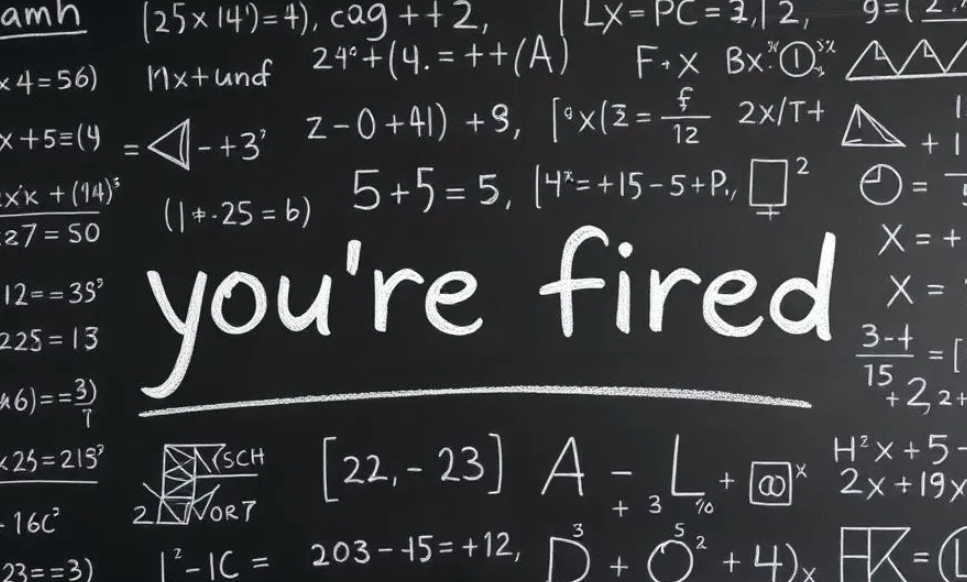 amh (25x14')=4), cag ++2, Lx=PC=2,12, g=(2.
x4=56) nx+und 24°+(4.=++(A) F+x Bx
x+5=(4 =◁-+3' z-0+41) +9, [°x(2= f/12 2x/T+
x'x +(14)³ 5+5=5, (4ˣ=+15-5+P., □²
27=50 (1+-25=b) X=+
you're fired
12==35° X=
225=13 3-4/15 =[
x6)==3) +2,2+
x25=215° SCH [22,-23] A - L + H²x+5-
2 VOR7 + 3 % 2x+19x
-16C²
23==3) 1²-1C= 203-15=+12, D³+O⁵²+4)x K=(